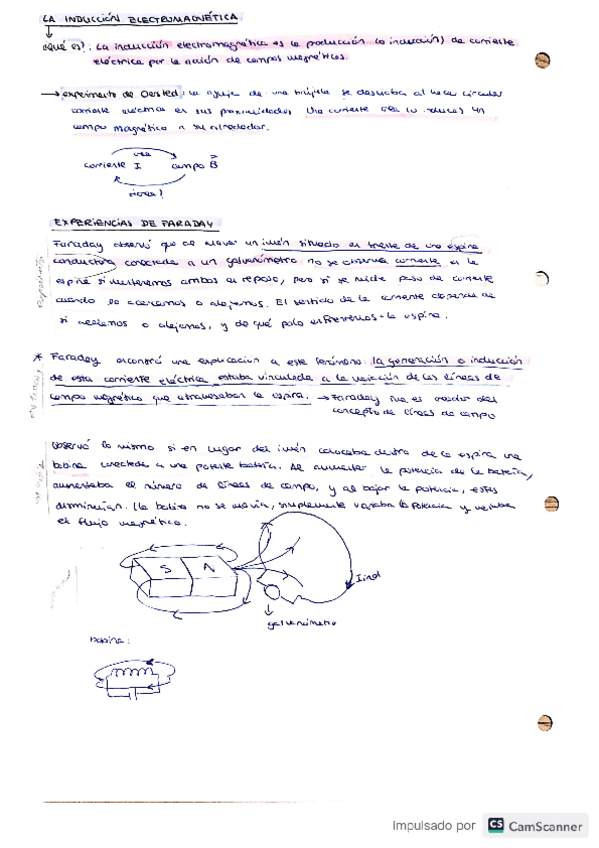 LA INDUCCIÓN ELECTROMAGNÉTICA
¿qué es?: La inducción electromagnética es la producción (o inducción) de corriente
eléctrica por la acción de campos magnéticos.
→ experimento de Oersted: la aguja de una brújula se desviaba al hacer circular
corriente eléctrica en sus proximidades. Una corriente crea (o induce) un
campo magnético a su alrededor.
crea
corriente I campo B
EXPERIENCIAS DE FARADAY
Faraday observó que al mover un imán situado en frente de una espira
conductora conectada a un galvanómetro no se observa corriente en la
espira si mantenemos ambos en reposo, pero si se mide paso de corriente
cuando lo acercamos o alejamos. El sentido de la corriente depende de
si acercamos o alejamos, y de qué polo enfrentemos a la espira.
* Faraday encontró una explicación a este fenómeno: la generación o inducción
de esta corriente eléctrica estaba vinculada a la variación de las líneas de
campo magnético que atravesaban la espira. → Faraday fue el creador del
concepto de líneas de campo
Observó lo mismo si en lugar del imán colocaba dentro de la espira una
bobina conectada a una potente batería. Al aumentar la potencia de la batería,
aumentaba el número de líneas de campo, y al bajar la potencia, estas
disminuían. (La bobina no se movía, simplemente variaba la potencia y variaba
el flujo magnético.
S N
I ind
galvanómetro
bobina:
Impulsado por CS CamScanner